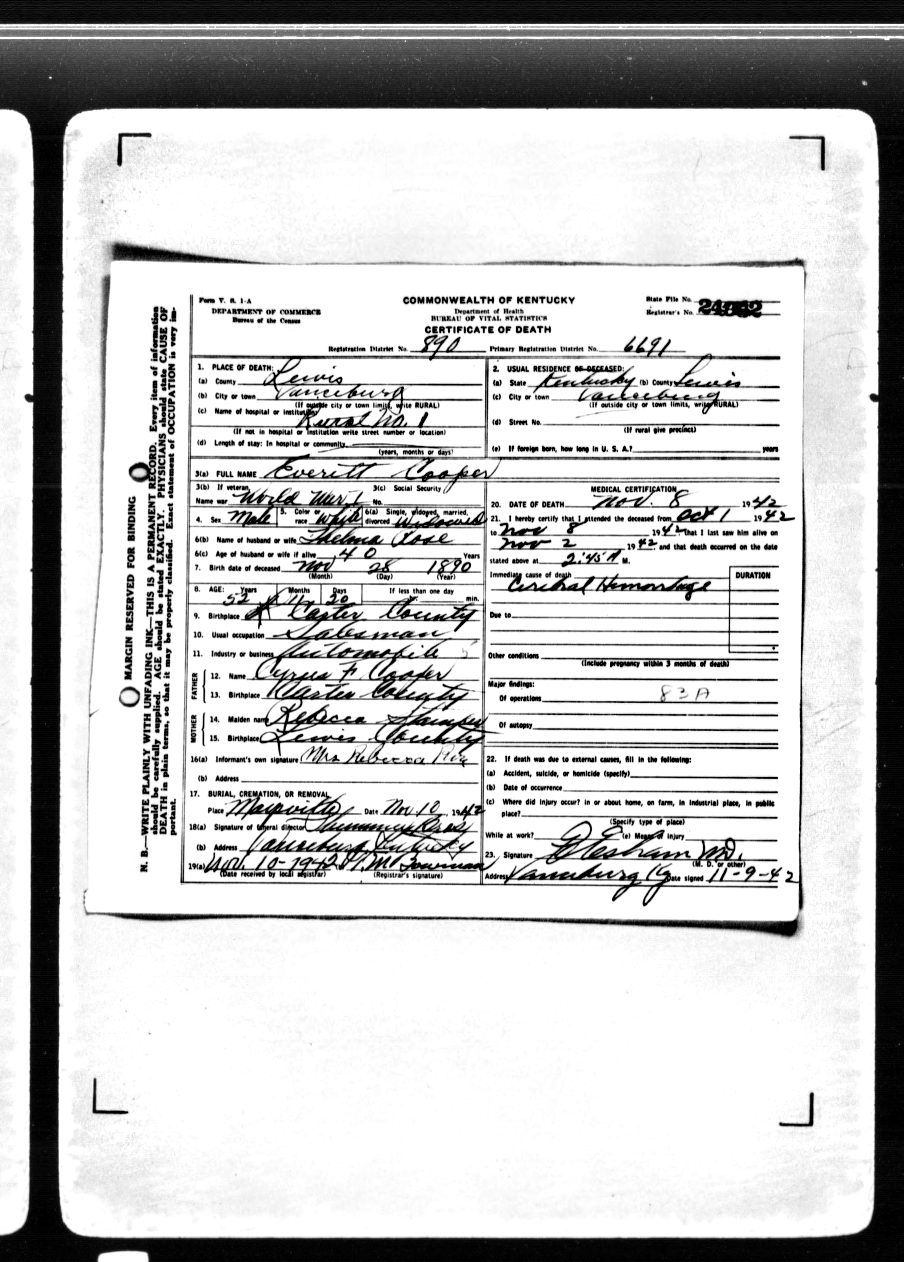 Form V. S. 1-A
DEPARTMENT OF COMMERCE
Bureau of the Census
COMMONWEALTH OF KENTUCKY
Department of Health
BUREAU OF VITAL STATISTICS
CERTIFICATE OF DEATH
State File No.
Registrar's No.
Registration District No. 890 Primary Registration District No. 6691
MARGIN RESERVED FOR BINDING
N. B.—WRITE PLAINLY WITH UNFADING INK—THIS IS A PERMANENT RECORD. Every item of information
should be carefully supplied. AGE should be stated EXACTLY. PHYSICIANS should state CAUSE OF
DEATH in plain terms, so that it may be properly classified. Exact statement of OCCUPATION is very im-
portant.
1. PLACE OF DEATH:
(a) County Lewis
(b) City or town Vanceburg
(If outside city or town limits, write RURAL)
(c) Name of hospital or institution Rural No. 1
(If not in hospital or institution write street number or location)
(d) Length of stay: In hospital or community
(years, months or days)
2. USUAL RESIDENCE OF DECEASED:
(a) State Kentucky (b) County Lewis
(c) City or town Vanceburg
(If outside city or town limits, write RURAL)
(d) Street No.
(If rural give precinct)
(e) If foreign born, how long in U. S. A.? years
3(a) FULL NAME Everitt Cooper
3(b) If veteran, 3(c) Social Security
Name war World War 1 No.
4. Sex Male 5. Color or race White 6(a) Single, widowed, married, divorced Widowed
6(b) Name of husband or wife Thelma Rose
6(c) Age of husband or wife if alive 40 Years
7. Birth date of deceased Nov 28 1890
(Month) (Day) (Year)
8. AGE: Years Months Days If less than one day
52 11 20 min.
9. Birthplace Carter County
10. Usual occupation Salesman
11. Industry or business Automobile
FATHER
12. Name Cyrus F. Cooper
13. Birthplace Carter County
MOTHER
14. Maiden name Rebecca Stamper
15. Birthplace Lewis County
16(a) Informant's own signature Mrs Rebecca
(b) Address
17. BURIAL, CREMATION, OR REMOVAL
Place Maysville Date Nov 10, 1942
18(a) Signature of funeral director
(b) Address Vanceburg Kentucky
19(a) Nov. 10-1942 Bowman
(Date received by local registrar) (Registrar's signature)
MEDICAL CERTIFICATION
20. DATE OF DEATH Nov. 8 1942
21. I hereby certify that I attended the deceased from Oct 1 1942
to Nov 8 1942, that I last saw him alive on
Nov 2 1942 and that death occurred on the date
stated above at 2:45 A M.
Immediate cause of death DURATION
Cerebral Hemorrhage
Due to
Other conditions
(Include pregnancy within 3 months of death)
Major findings:
Of operations 83A
Of autopsy
22. If death was due to external causes, fill in the following:
(a) Accident, suicide, or homicide (specify)
(b) Date of occurrence
(c) Where did injury occur? in or about home, on farm, in industrial place, in public
place?
(Specify type of place)
While at work? (e) Means of injury
23. Signature M.D.
(M. D. or other)
Address Vanceburg Ky Date signed 11-9-42